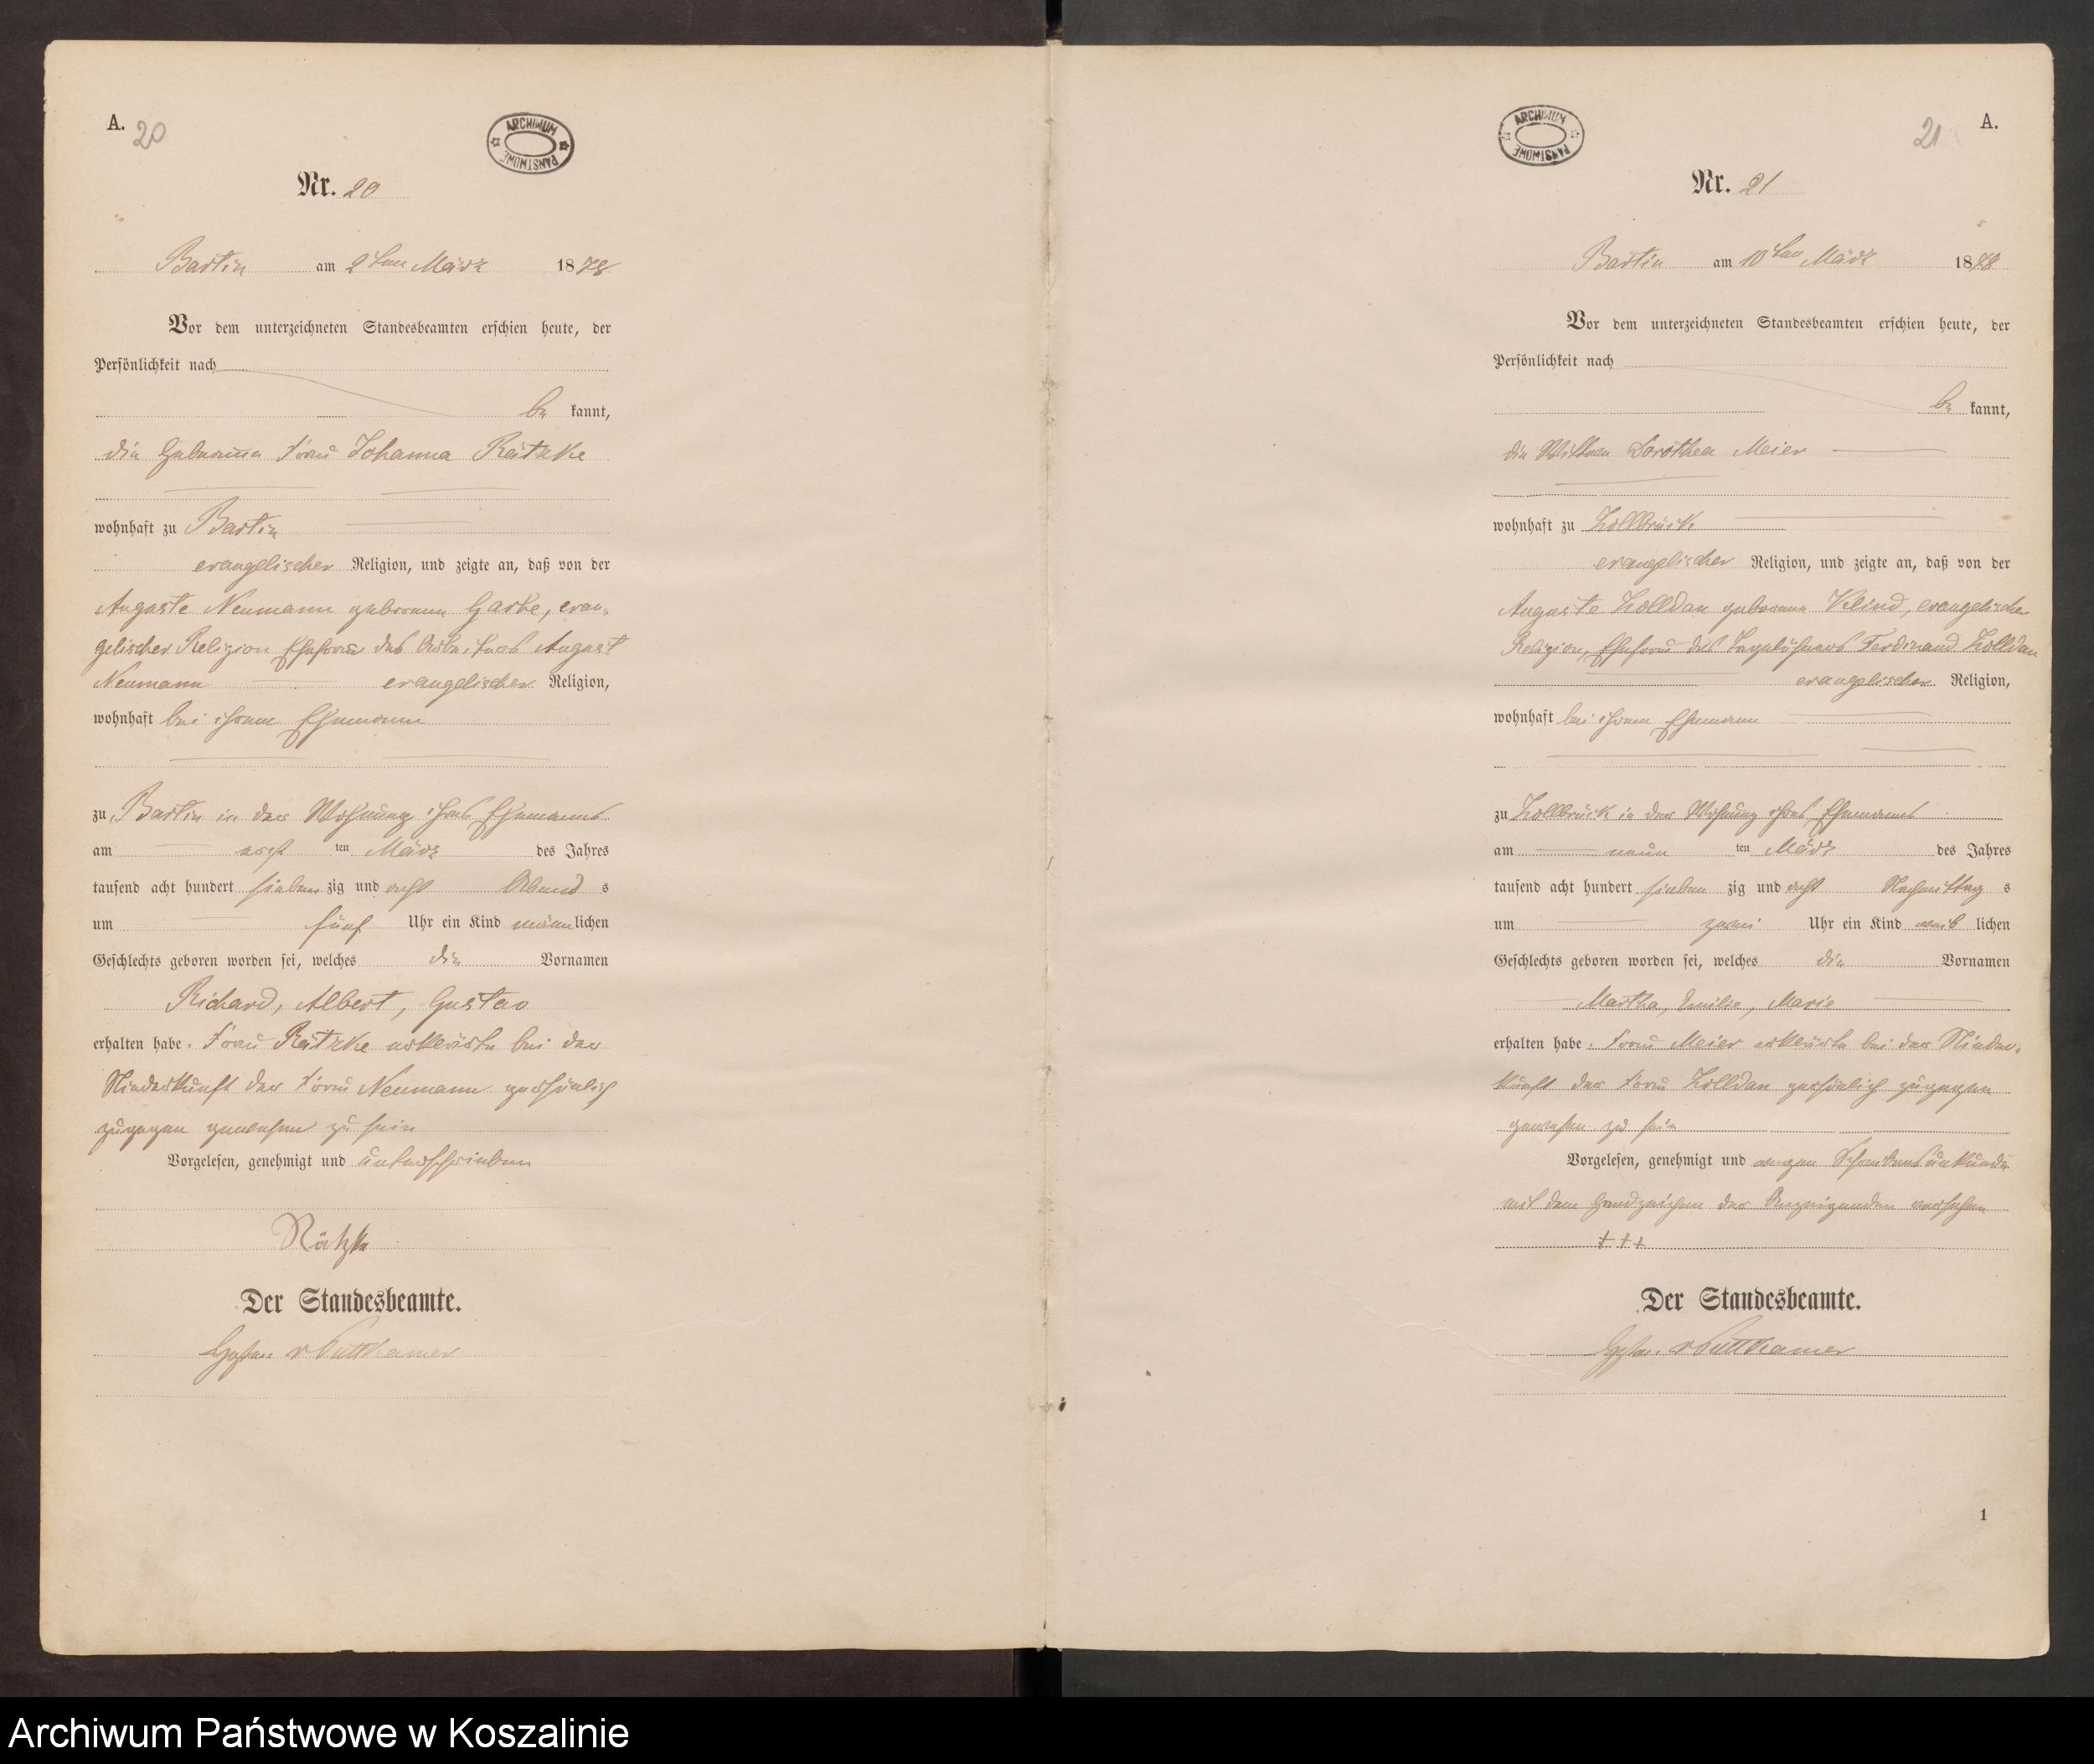 A. 20
ARCHIWUM PAŃSTWOWE
Nr. 20
Bartin am 2ten März 1878
Vor dem unterzeichneten Standesbeamten erschien heute, der
Persönlichkeit nach
be kannt,
die Hebamme Frau Johanna Rätzke
wohnhaft zu Bartin
evangelischer Religion, und zeigte an, daß von der
Auguste Neumann geborenen Garbe, evan-
gelischer Religion Ehefrau des Arbeiters August
Neumann evangelischer Religion,
wohnhaft bei ihrem Ehemann
zu Bartin in der Wohnung ihres Ehemanns
am ersten März des Jahres
tausend acht hundert siebenzig und acht Abends
um fünf Uhr ein Kind männlichen
Geschlechts geboren worden sei, welches die Vornamen
Richard, Albert, Gustav
erhalten habe. Frau Rätzke erklärte bei der
Niederkunft der Frau Neumann persönlich
zugegen gewesen zu sein
Vorgelesen, genehmigt und unterschrieben
Rätzke
Der Standesbeamte.
v Puttkamer
21 A.
ARCHIWUM PAŃSTWOWE
Nr. 21
Bartin am 10ten März 1878
Vor dem unterzeichneten Standesbeamten erschien heute, der
Persönlichkeit nach
be kannt,
die Wittwe Dorothea Meier
wohnhaft zu Zollbrück
evangelischer Religion, und zeigte an, daß von der
Auguste Zolldan geborenen evangelischer
Religion, Ehefrau des Tagelöhners Ferdinand Zolldan
evangelischer Religion,
wohnhaft bei ihrem Ehemann
zu Zollbrück in der Wohnung ihres Ehemanns
am neunten März des Jahres
tausend acht hundert siebenzig und acht Nachmittags
um zwei Uhr ein Kind weiblichen
Geschlechts geboren worden sei, welches die Vornamen
Martha, Emilie, Marie
erhalten habe. Frau Meier erklärte bei der Nieder-
kunft der Frau Zolldan persönlich zugegen
gewesen zu sein
Vorgelesen, genehmigt und wegen Schreibensunkunde
mit dem Handzeichen der Anzeigenden versehen
+++
Der Standesbeamte.
v Puttkamer
1
Archiwum Państwowe w Koszalinie